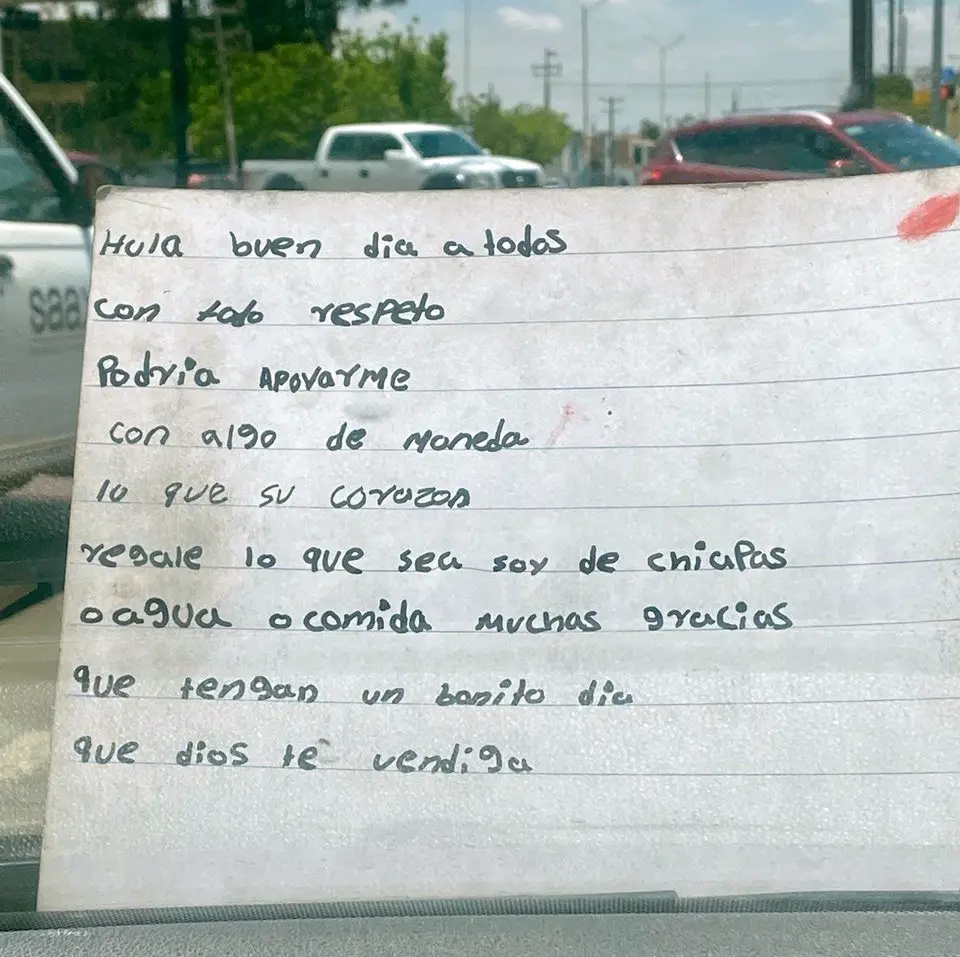 saa
Hola buen dia a todos
con todo respeto
Podria APOYARME
con algo de Moneda
lo que su corazon
regale lo que sea soy de chiapas
o agua o comida Muchas gracias
que tengan un bonito dia
que dios te vendiga